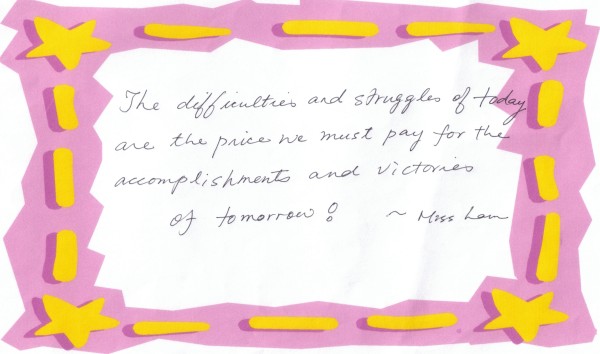 The difficulties and struggles of today
are the price we must pay for the
accomplishments and victories
of tomorrow! ~ Miss Lam